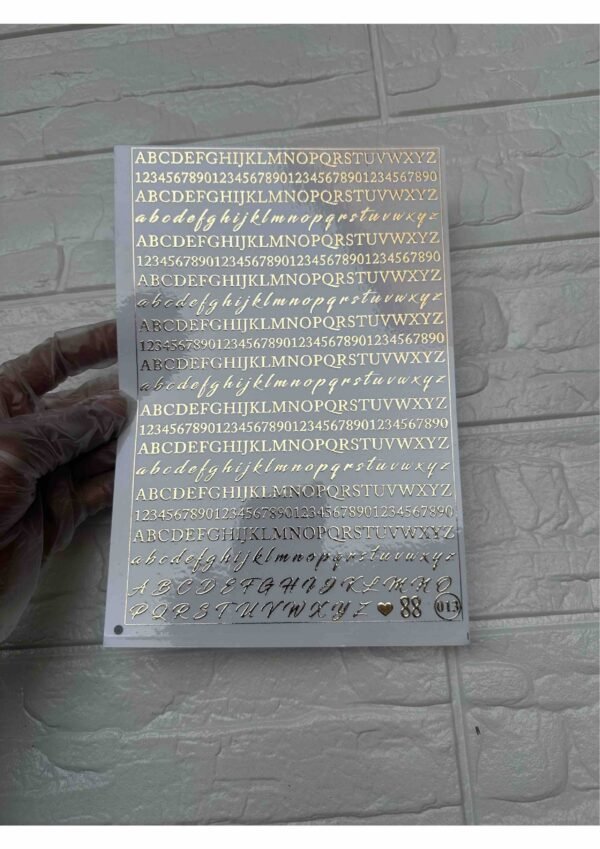 ABCDEFGHIJKLMNOPQRSTUVWXYZ
123456789012345678901234567890
ABCDEFGHIJKLMNOPQRSTUVWXYZ
abcdefghijklmnopqrstuvwxyz
ABCDEFGHIJKLMNOPQRSTUVWXYZ
123456789012345678901234567890
ABCDEFGHIJKLMNOPQRSTUVWXYZ
abcdefghijklmnopqrstuvwxyz
ABCDEFGHIJKLMNOPQRSTUVWXYZ
123456789012345678901234567890
ABCDEFGHIJKLMNOPQRSTUVWXYZ
abcdefghijklmnopqrstuvwxyz
ABCDEFGHIJKLMNOPQRSTUVWXYZ
123456789012345678901234567890
ABCDEFGHIJKLMNOPQRSTUVWXYZ
abcdefghijklmnopqrstuvwxyz
ABCDEFGHIJKLMNOPQRSTUVWXYZ
123456789012345678901234567890
ABCDEFGHIJKLMNOPQRSTUVWXYZ
abcdefghijklmnopqrstuvwxyz
A B C D E F G H I J K L M N O
P Q R S T U V W X Y Z 88 013